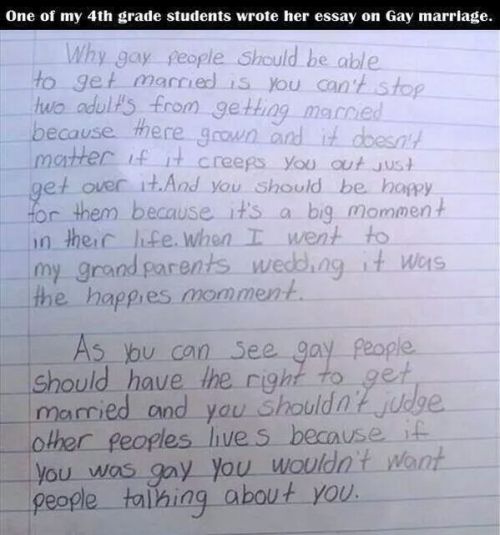 One of my 4th grade students wrote her essay on Gay marriage.
Why gay people should be able
to get married is you can't stop
two adult's from getting married
because there grown and it doesn't
matter if it creeps you out just
get over it.And you should be happy
for them because it's a big momment
in their life.When I went to
my grandparents wedding it was
the happies momment.
As you can see gay people
should have the right to get
married and you shouldn't judge
other peoples lives because if
you was gay you wouldn't want
people talking about you.